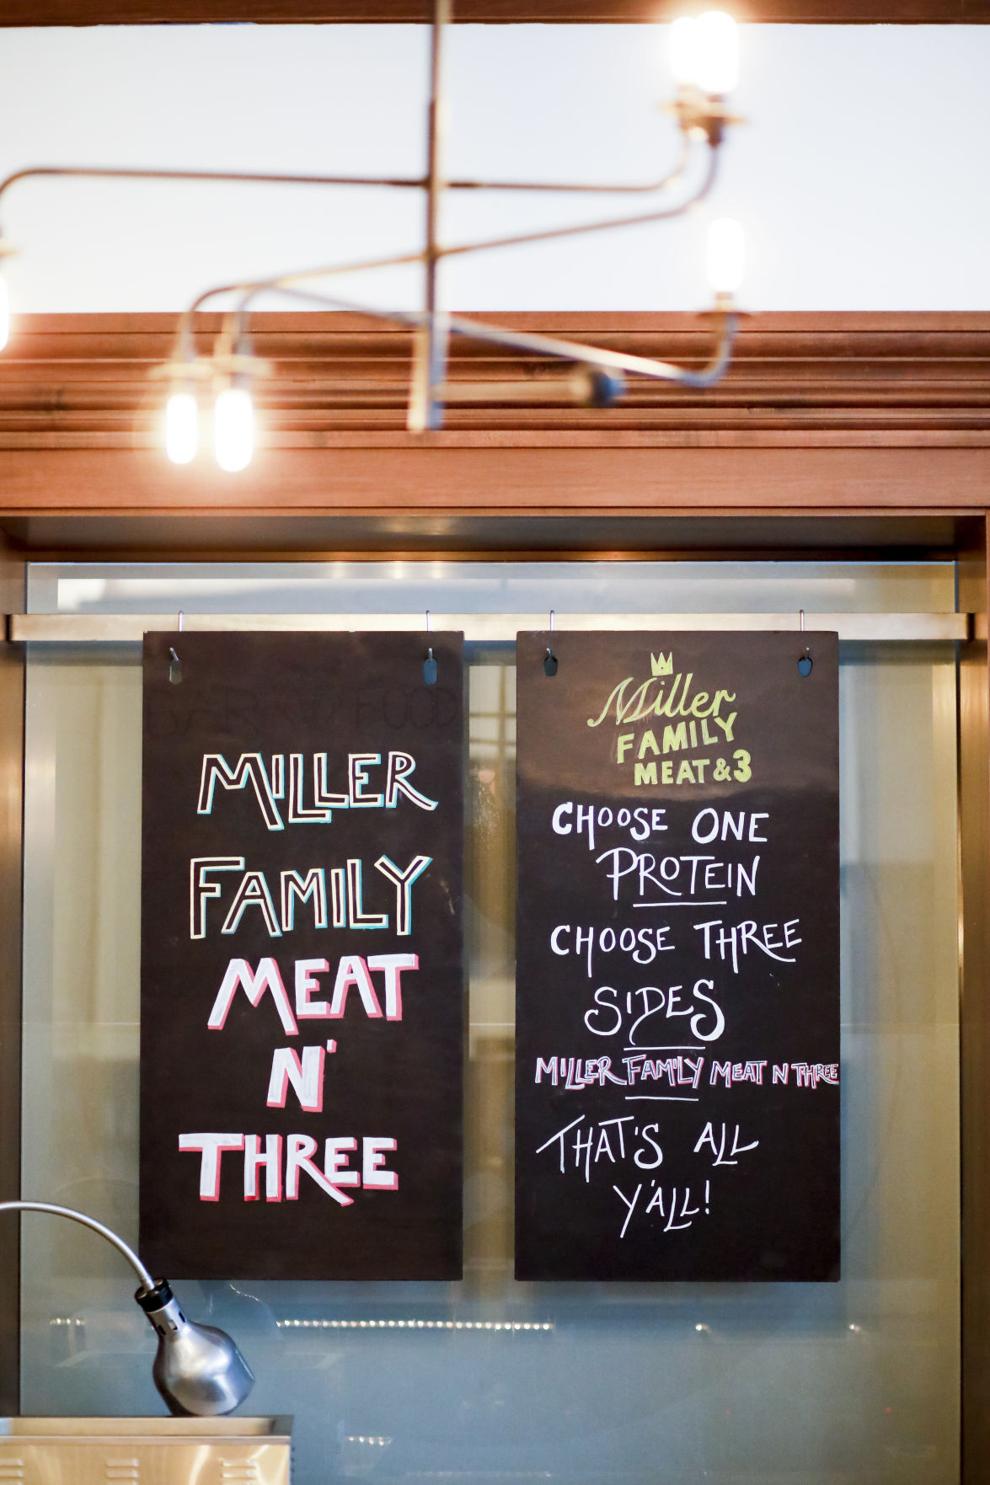 MILLER
FAMILY
MEAT
N'
THREE
Miller
FAMILY
MEAT & 3
CHOOSE ONE
PROTEIN
CHOOSE THREE
SIDES
MILLER FAMILY MEAT N THREE
THAT'S ALL
Y'ALL!